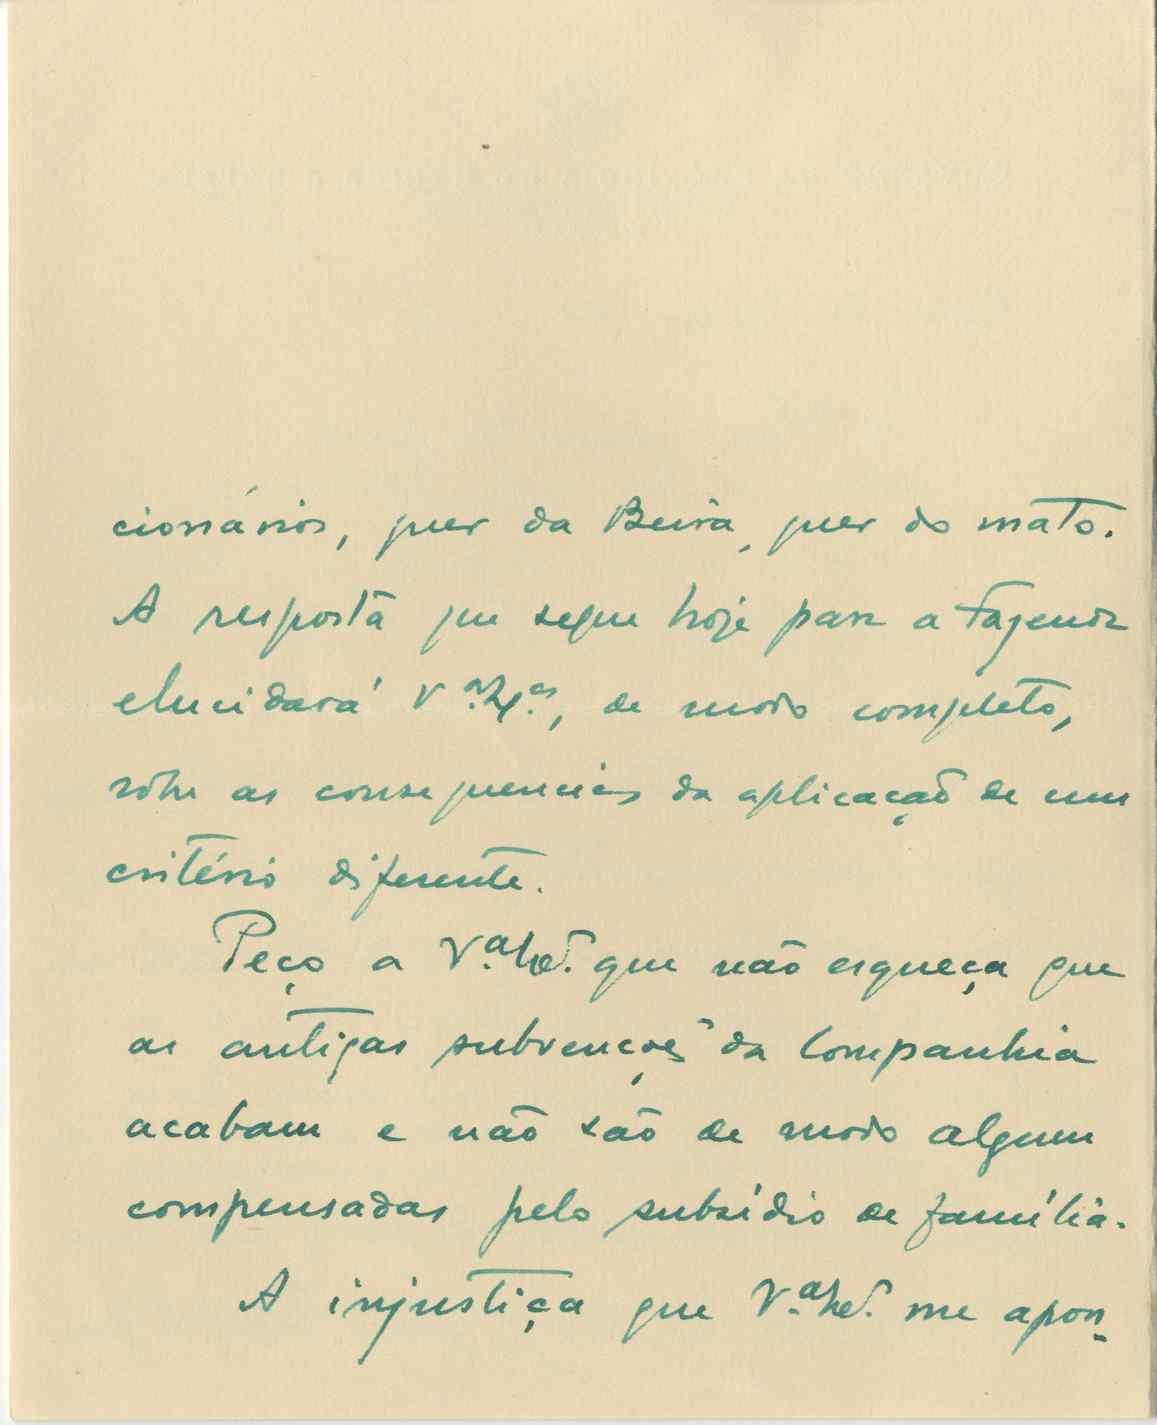 cionários, quer da Beira, quer do mato.
A resposta que segue hoje para a Fazenda
elucidará V.ª Ex.ª, de modo completo,
sôbre as consequencias da aplicação de um
critério diferente.
Peço a V.ª Ex.ª que não esqueça que
as antigas subvenções da Companhia
acabam e não são de modo algum
compensadas pelo subsídio de família.
A injustiça que V.ª Ex.ª me apon-